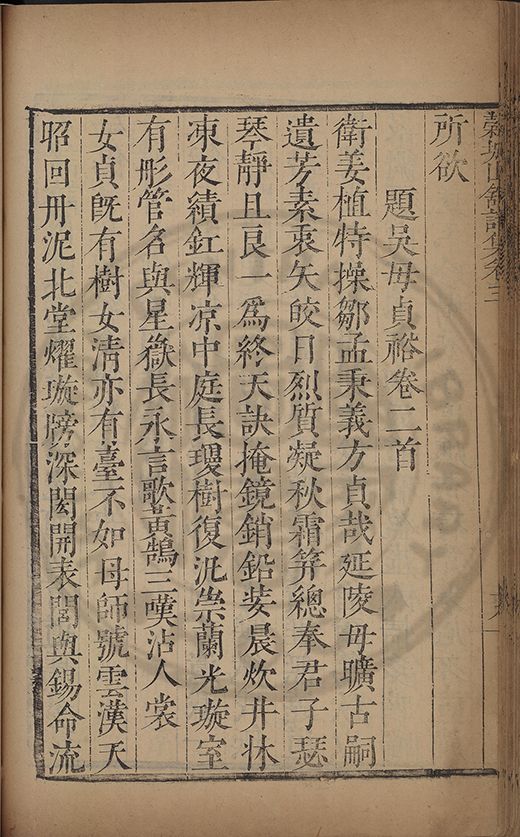 穀城山館詩集卷三
所欲
題吳母貞裕卷二首
衛姜植特操鄒孟秉義方貞哉延陵母曠古嗣
遺芳素衷矢皎日烈質凝秋霜笄總奉君子瑟
琴靜且良一爲終天訣掩鏡銷鉛妾晨炊井牀
凍夜績釭輝凉中庭長瓊樹復汎崇蘭光璇室
有彤管名與星嶽長永言歌黃鵠三嘆沾人裳
女貞旣有樹女淸亦有臺不如母師號雲漢天
昭回丹泥北堂燿璇牓深閎開表閭與錫命流